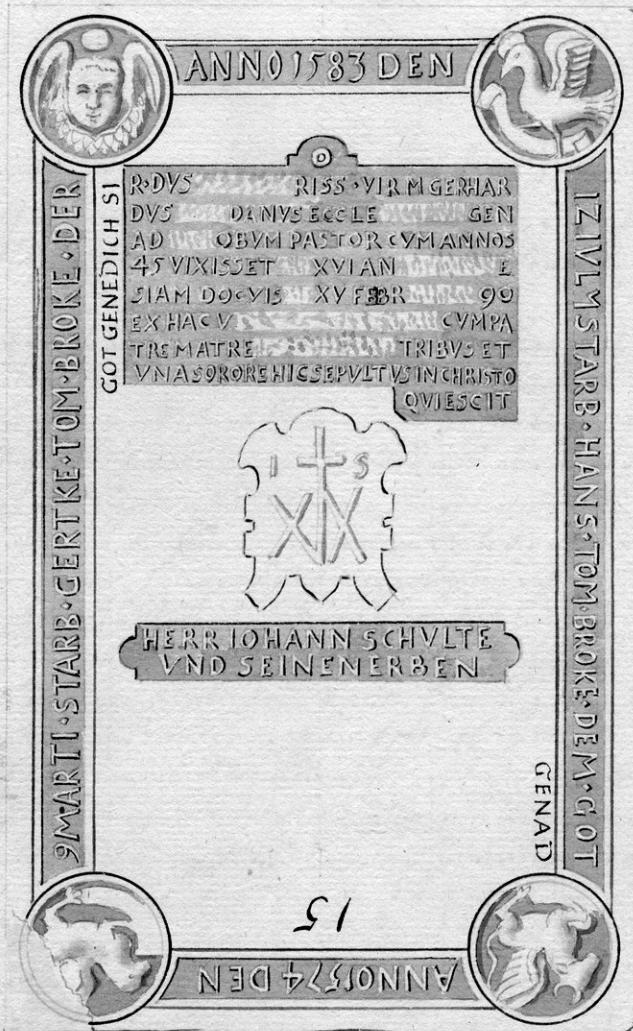 ANNO 1583 DEN
IZ IVLY STARB · HANS · TOM · BROKE · DEM · GOT
GENAD
ANNO 1574 DEN
9 MARTI · STARB · GERTKE · TOM · BROKE · DER
GOT GENEDICH SI
R · DVS RISS · VIR M GERHAR
DVS DINVS ECCLE GEN
AD OBVM PASTOR CVM ANNOS
45 VIXISSET XVI AN E
SIAM DOCVIS XV FEBR 90
EX HAC V CVM PA
TRE MATRE TRIBVS ET
VNA SORORE HIC SEPVLTVS IN CHRISTO
QVIESCIT
I S
XIX
HERR IOHANN SCHVLTE
VND SEINEN ERBEN
15